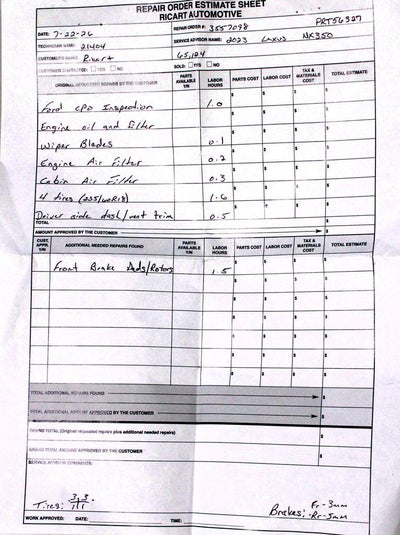 REPAIR ORDER ESTIMATE SHEET
RICART AUTOMOTIVE
DATE: 7-22-26 REPAIR ORDER #: 3557098 PRT56327
TECHNICIAN NAME: 21404 SERVICE ADVISOR NAME: 2023 Lexus NX350
CUSTOMER'S NAME: Ricart 65,124
CUSTOMER CONTACTED: YES NO SOLD: YES NO
ORIGINAL REQUESTED REPAIRS BY THE CUSTOMER PARTS AVAILABLE Y/N LABOR HOURS PARTS COST LABOR COST TAX & MATERIALS COST TOTAL ESTIMATE
Ford CPO Inspection 1.0 $ $ $ $
Engine oil and filter $ $ $ $
Wiper Blades 0.1 $ $ $ $
Engine Air Filter 0.2 $ $ $ $
Cabin Air Filter 0.3 $ $ $ $
4 tires (235/60R18) 1.6 $ $ $ $
Driver side dash/vent trim 0.5 $ $ $ $
TOTAL
AMOUNT APPROVED BY THE CUSTOMER $
CUST. APPR. Y/N ADDITIONAL NEEDED REPAIRS FOUND PARTS AVAILABLE Y/N LABOR HOURS PARTS COST LABOR COST TAX & MATERIALS COST TOTAL ESTIMATE
Front Brake Pads/Rotors 1.5 $ $ $ $
$ $ $ $
$ $ $ $
$ $ $ $
$ $ $ $
$ $ $ $
TOTAL ADDITIONAL REPAIRS FOUND $
TOTAL ADDITIONAL AMOUNT APPROVED BY THE CUSTOMER $
GRAND TOTAL (Original requested repairs plus additional needed repairs) $
GRAND TOTAL AMOUNT APPROVED BY THE CUSTOMER $
SERVICE ADVISOR COMMENTS:
Tires: 3 3
Brakes: Fr-3mm
Rr-5mm
WORK APPROVED: DATE: TIME: